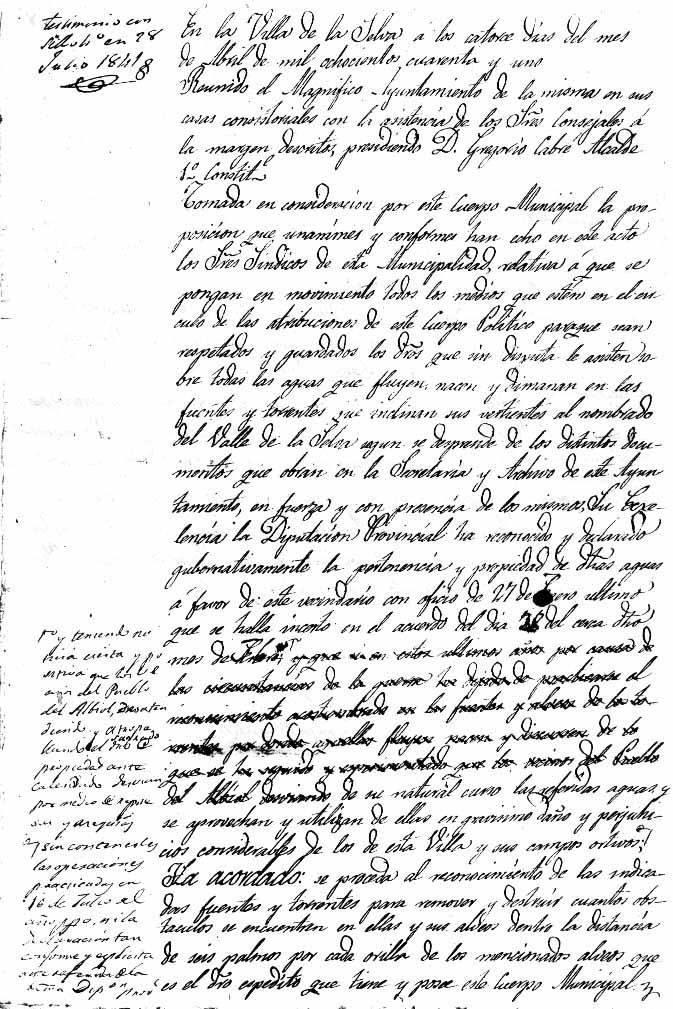 testimonio con
sello 4º en 28
Julio 1841
En la Villa de la Selva a los catorce dias del mes
de Abril de mil ochocientos cuarenta y uno
Reunido el Magnifico Ayuntamiento de la misma en sus
casas consistoriales con la asistencia de los Sres Consejales á
la margen descritos, presidiendo D. Gregorio Cabré Alcalde
1º Constitl
Tomada en consideracion por este Cuerpo Municipal la pro-
posicion que unanimes y conformes han echo en este acto
los Sres Sindicos de esta Municipalidad, relativa á que se
pongan en movimiento todos los medios que esten en el cir
culo de las atribuciones de este Cuerpo Politico paraque sean
respetados y guardados los dros que sin disputa le asisten so-
bre todas las aguas que fluyen, nacen y dimanan en las
fuentes y torrentes que inclinan sus vertientes al nombrado
del Valle de la Selva segun se desprende de los distintos docu-
mentos que obran en la Secretaria y Archivo de este Ayun-
tamiento, en fuerza y con presencia de los mismos, Su Exce-
lencia la Diputacion Provincial ha reconocido y declarado
gubernativamente la pertenencia y propiedad de dhas aguas
á favor de este vecindario con oficio de 27 de Enero ultimo
que se halla incerto en el acuerdo del dia del cerca dho
mes de y que si en estos ultimos años por causa de
las circunstancias de la guerra ha dejado de practicarse el
reconocimiento acostumbrado en las fuentes y
por donde aquellas fluyen nacen y discurren de lo
que se ha seguido y que los vecinos del Pueblo
del Albiol desviando de su natural curso las referidas aguas, y
se aprovechan y utilizan de ellas en gravisimo daño y perjui-
cios considerables de los de esta Villa y sus campos ortivos:
Ha acordado: se proceda al reconocimiento de las indica-
das fuentes y torrentes para remover y destruir cuantos obs-
taculos se encuentren en ellas y sus alveos dentro la distancia
de seis palmos por cada orilla de los mencionados alveos que
es el dro espedito que tiene y posee este Cuerpo Municipal y
y teniendo no
ticia cierta y po
sitiva que los ve
cinos del Pueblo
del Albiol, desaten
diendo y atrope
llando el dro
propiedad ante
calendado
por medio de
y
sin concenerles
las operaciones
practicadas en
16 de Julio el
año ppo, ni la
declaracion tan
conforme y esplicita
ante referida de la
misma Dipon